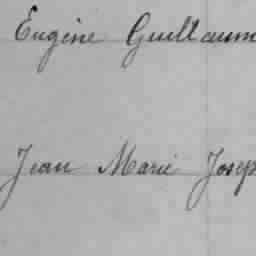 Eugène Guillaum
Jean Marie Josep